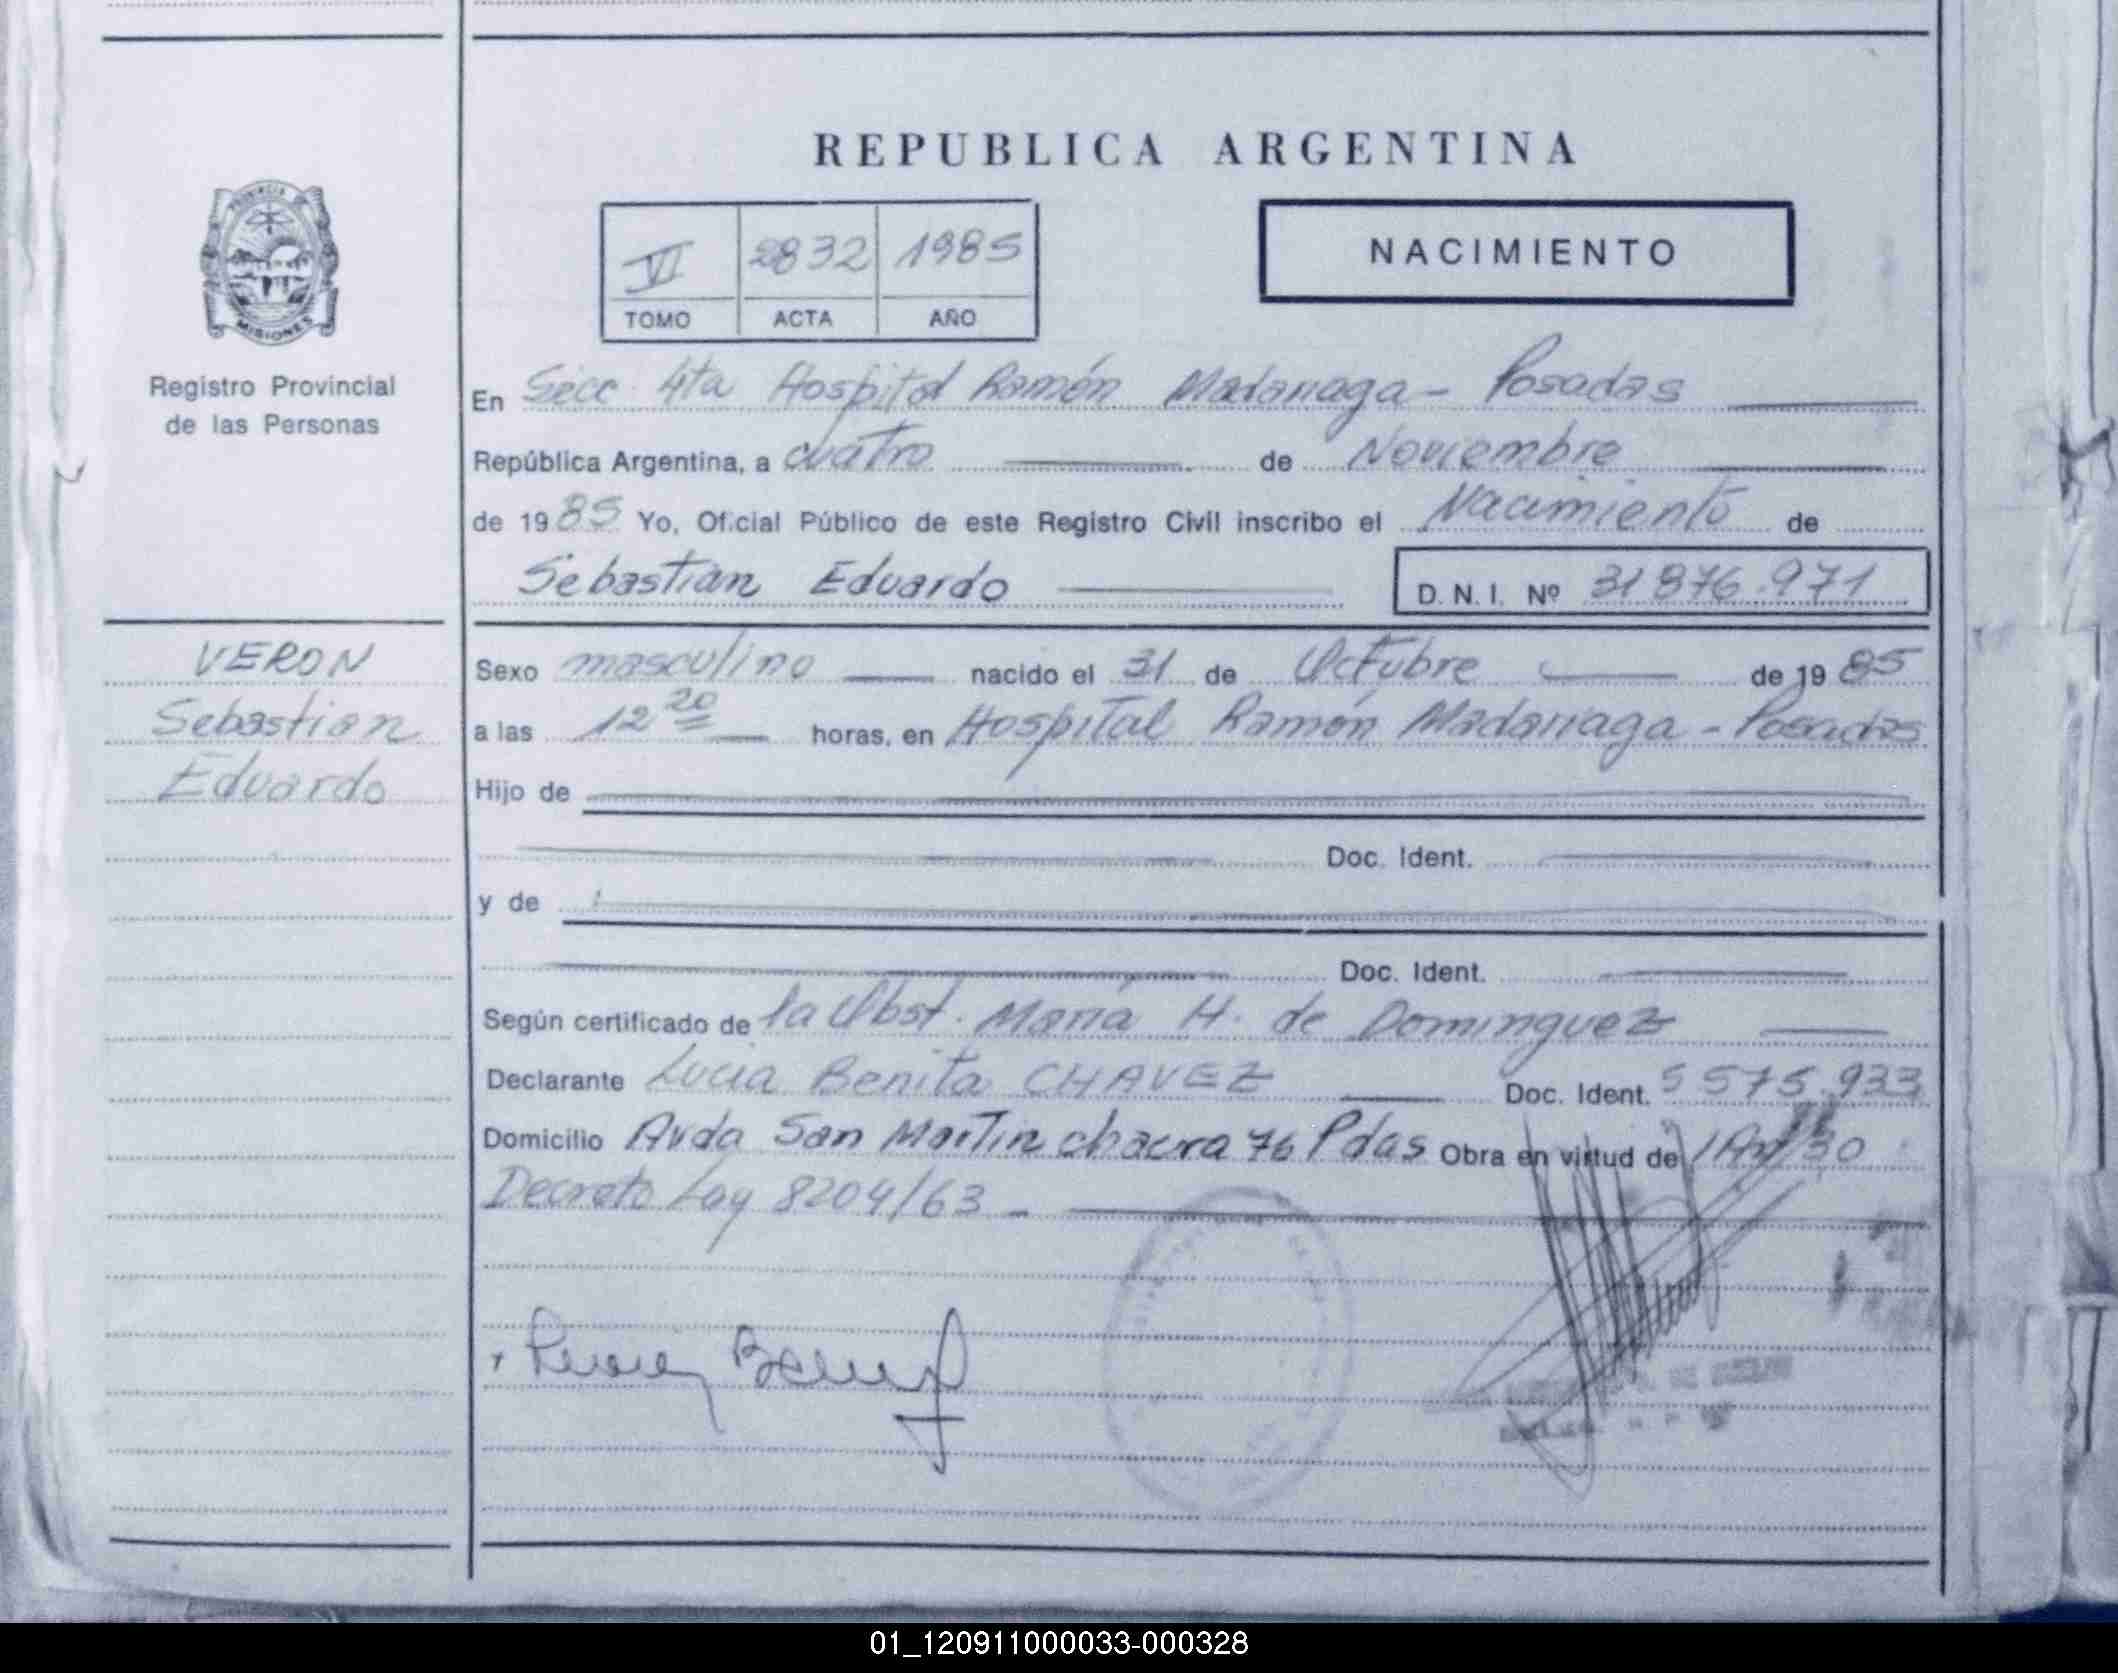 REPUBLICA ARGENTINA
VI 2832 1985
TOMO ACTA AÑO
NACIMIENTO
PROVINCIA DE
MISIONES
Registro Provincial
de las Personas
En Secc 4ta Hospital Ramón Madariaga - Posadas
República Argentina, a cuatro de Noviembre
de 1985 Yo, Oficial Público de este Registro Civil inscribo el Nacimiento de
Sebastian Eduardo D.N.I. Nº 31876.971
VERON
Sebastian
Eduardo
Sexo masculino nacido el 31 de Octubre de 1985
a las 12 20 horas, en Hospital Ramón Madariaga - Posadas
Hijo de
Doc. Ident.
y de
Doc. Ident.
Según certificado de la Obst. Maria H. de Dominguez
Declarante Lucia Benita CHAVEZ Doc. Ident. 5575.933
Domicilio Avda San Martin chacra 76 Pdas Obra en virtud de Art 30
Decreto Ley 8204/63 -
01_120911000033-000328